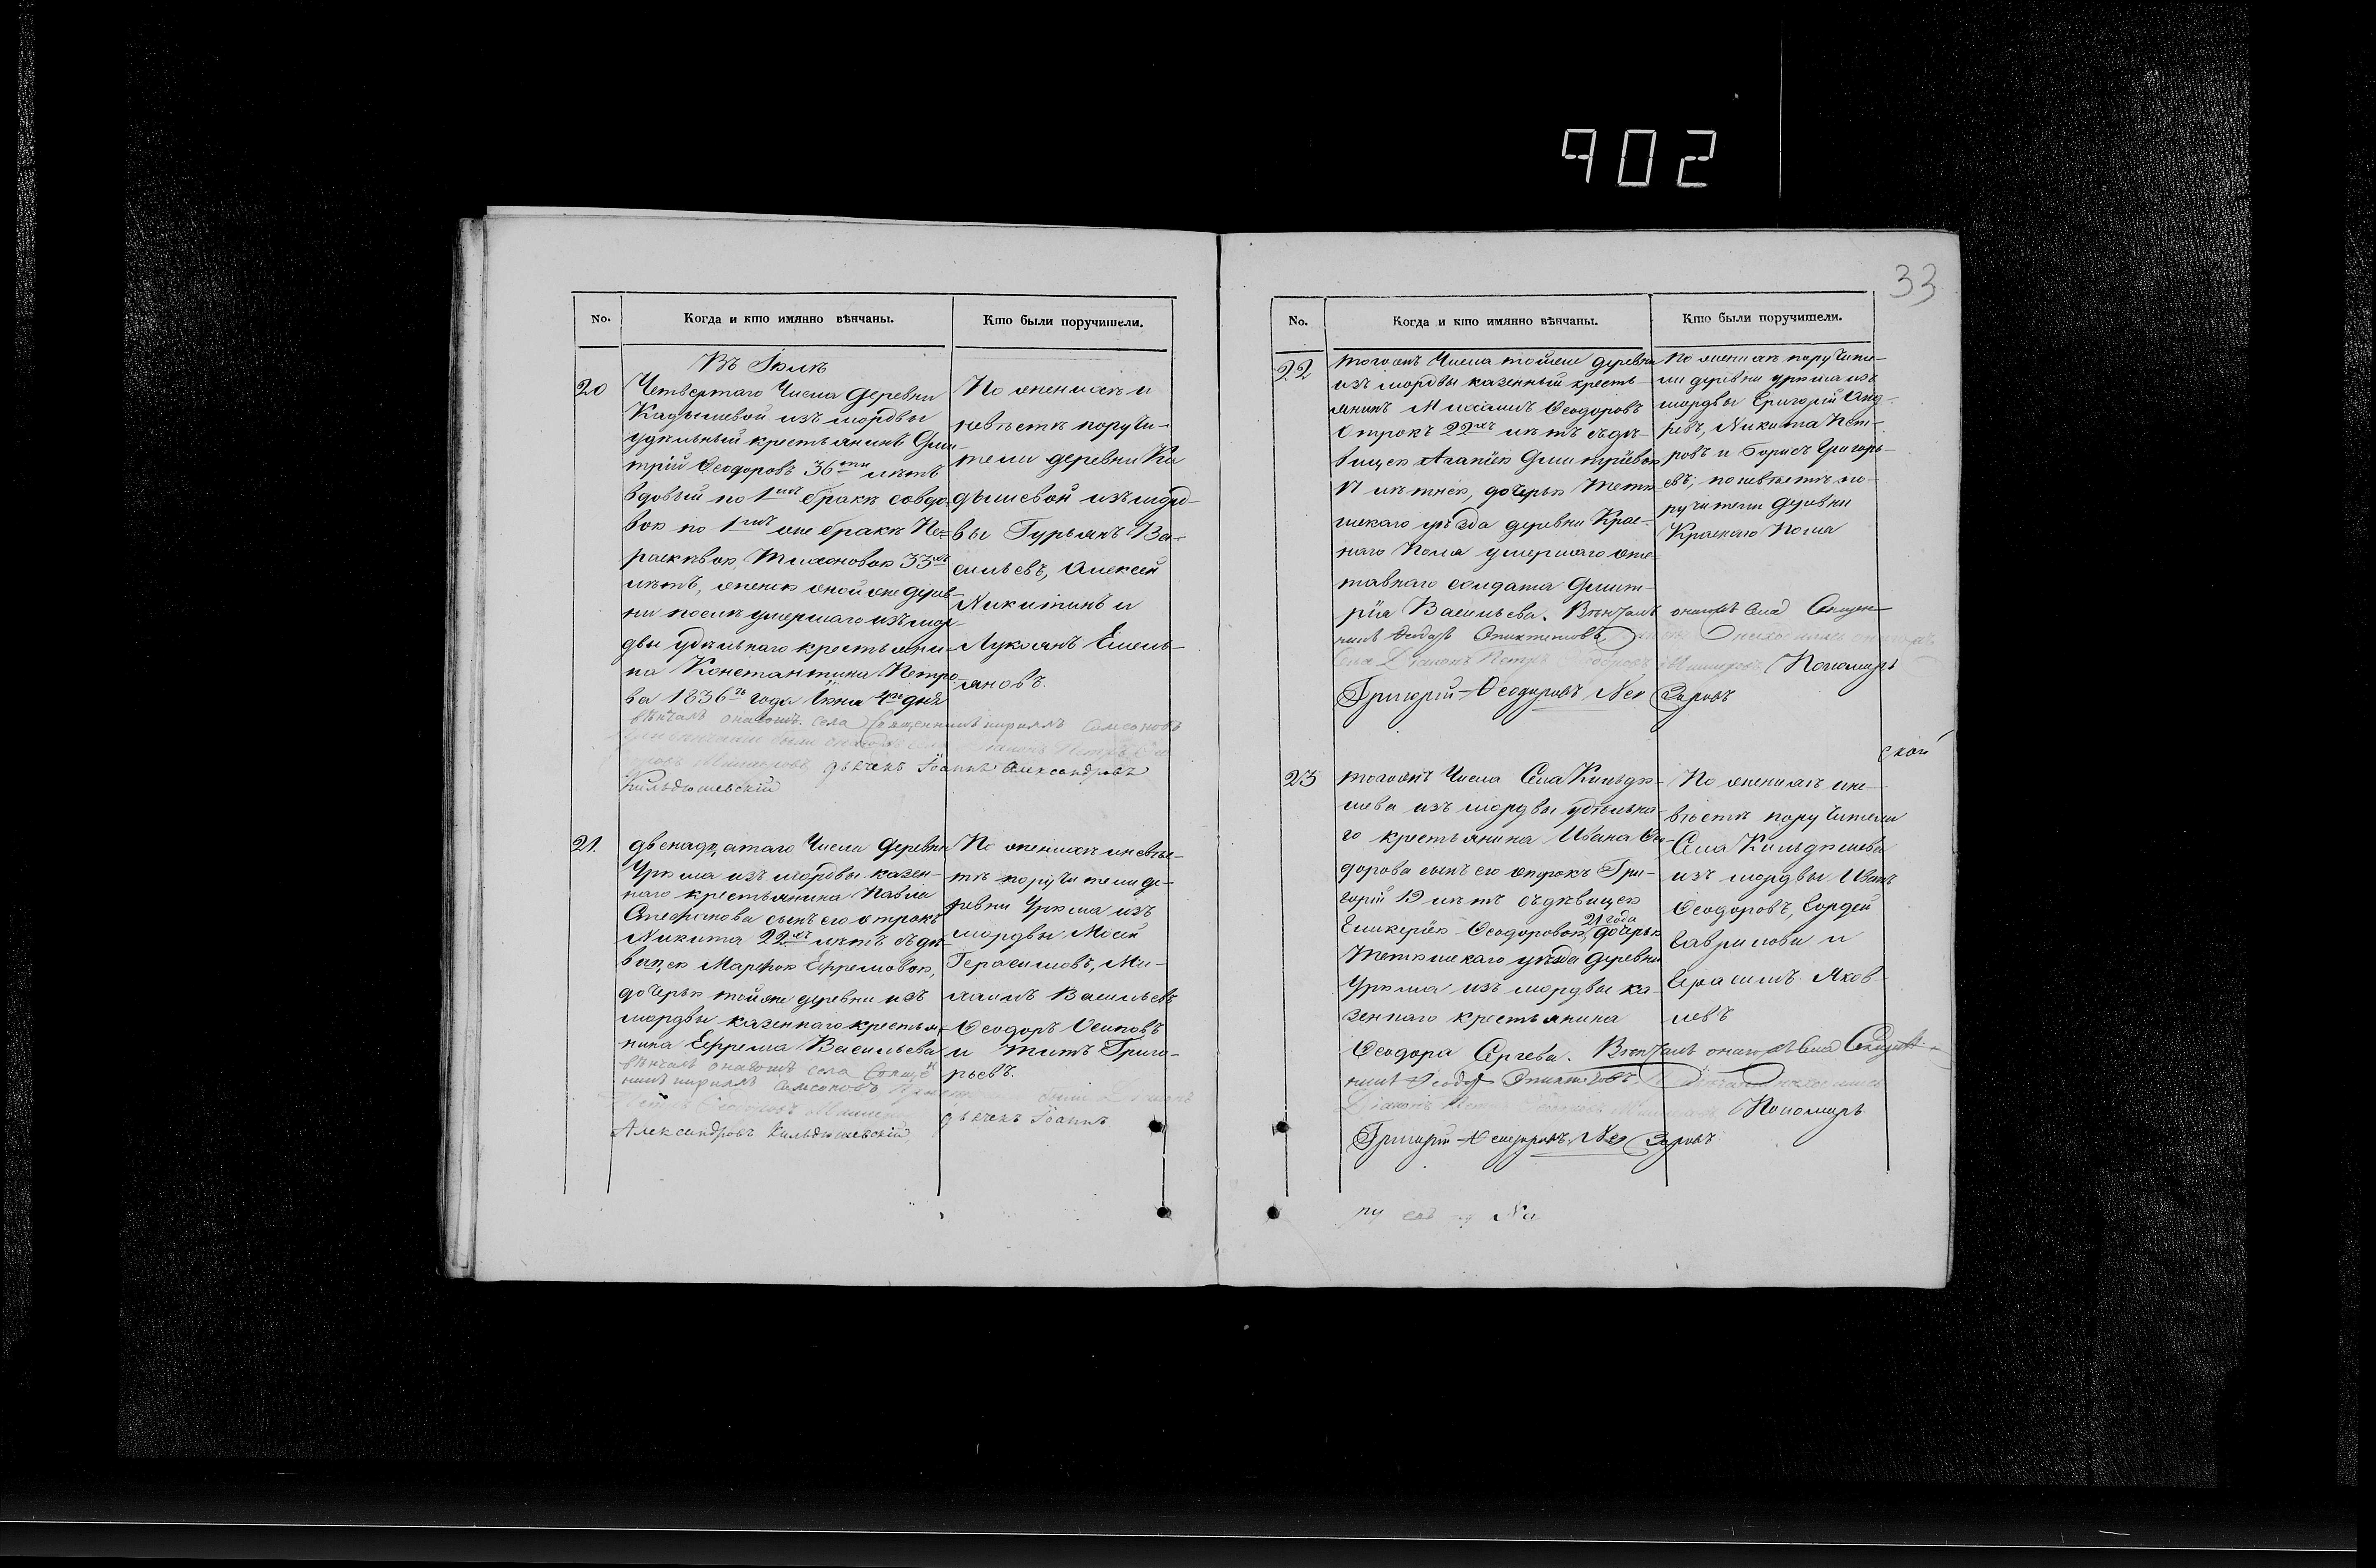 902
No. Когда и кто имянно вѣнчаны. Кто были поручители.
Въ Іюлѣ
20 Четвертаго Числа деревни
Кадышевой изъ мордвы
удѣльный крестьянинъ Дми-
трій Ѳеодоровъ 36ти лѣтъ
вдовый по 1мъ бракѣ со вдо-
вою по 1мъ же бракѣ Па-
раскивою Тихоновою 33хъ
лѣтъ, женою оной же дерев-
ни послѣ умершаго изъ мор-
двы удѣльнаго крестьяни-
на Константина Петро-
ва 1836го года дня
вѣнчалъ онагожъ села Священникъ Кириллъ Самсоновъ
дьячекъ Іоаннъ Александровъ
Кильдюшевскій
По женихѣ и
невѣстѣ поручи-
тели деревни Ка
дышевой изъ морд-
вы Гурьянъ Ва-
сильевъ, Алексѣй
Никитинъ и
Лукоянъ Емель-
яновъ.
21. двенадцатаго Числа деревни
Урюма изъ мордвы казен-
наго крестьянина Павла
Стефанова сынъ его отрокъ
Никита 22хъ лѣтъ съ дѣ-
вицею Марѳою Ефремовою,
дочерью той же деревни изъ
мордвы казеннаго крестья-
нина Ефрема Васильева
вѣнчалъ онагожъ села Священ
никъ Кириллъ Самсоновъ
дьячекъ Іоаннъ
Александровъ Кильдюшевскій
По женихѣ и невѣс-
тѣ поручители де-
ревни Урюма изъ
мордвы Мосей
Герасимовъ, Ми-
хаилъ Васильевъ
Ѳеодоръ Осиповъ
и Титъ Григо-
рьевъ.
33
No. Когда и кто имянно вѣнчаны. Кто были поручители.
22 тогожъ Числа тойже деревни
изъ мордвы казенный кресть-
янинъ Михаилъ Ѳеодоровъ
отрокъ 22хъ лѣтъ съ дѣ-
вицею Дмитріевою
лѣтнею, дочерью Тетю-
шскаго уѣзда деревни Крас-
наго Пола умершаго отс-
тавнаго солдата Дмит-
рія Васильева. Вѣнчалъ онагожъ Села Священ-
никъ Ѳеодоръ
Пономарь
Григорій Ѳеодоровъ
По женихѣ поручите-
ли деревни Урюма изъ
мордвы Григорій Анд-
реевъ, Никита Пет-
ровъ и Борисъ Григорь-
евъ; по невѣстѣ по-
ручители деревни
Краснаго Пола
23 тогожъ Числа Села Кильдю-
шева изъ мордвы удѣльна-
го крестьянина Ивана Ѳео-
дорова сынъ его отрокъ Гри-
горій 19 лѣтъ съ дѣвицею
21 года
Ѳеодоровою, дочерью
Тетюшскаго уѣзда деревни
Урюма изъ мордвы ка-
зеннаго крестьянина
Ѳеодора Сергѣева. Вѣнчалъ онагожъ Села Священ-
никъ Ѳеодоръ
Пономарь
Григорій Ѳеодоровъ
По женихѣ и не-
вѣстѣ поручители
Села Кильдюшева
изъ мордвы Иванъ
Ѳеодоровъ, Сергѣй
Гавриловъ и
Герасимъ Яков-
левъ